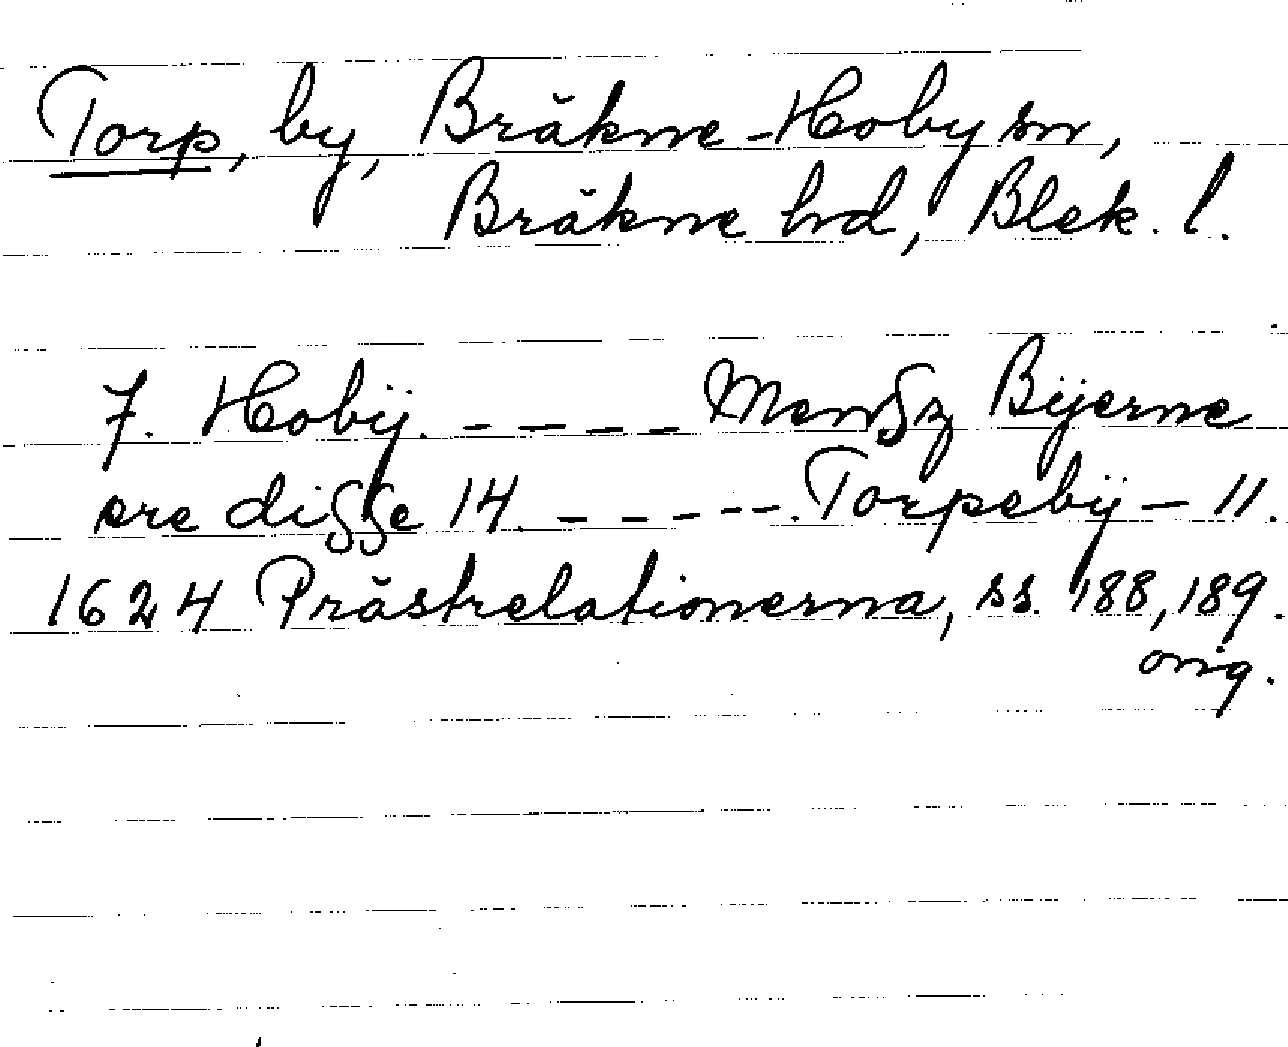 Torp, by, Bräkne-Hoby sn,
Bräkne hd, Blek. l.
7. Hobÿ. - - - - Menſz Bÿerne
ere diſſe 14. - - - - - . Torpebÿ - 11.
1624 Prästrelationerna, ss. 188, 189.
orig.